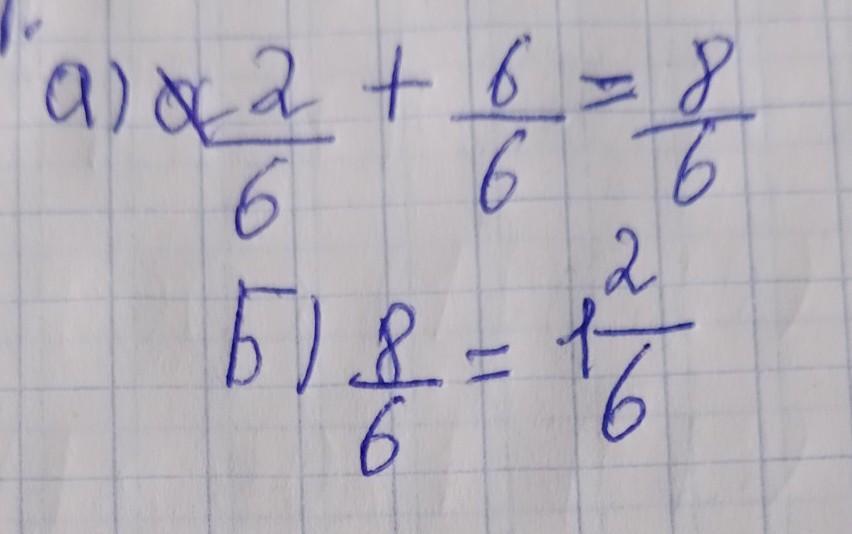 1.
а) 2/6 + 6/6 = 8/6
Б) 8/6 = 1 2/6